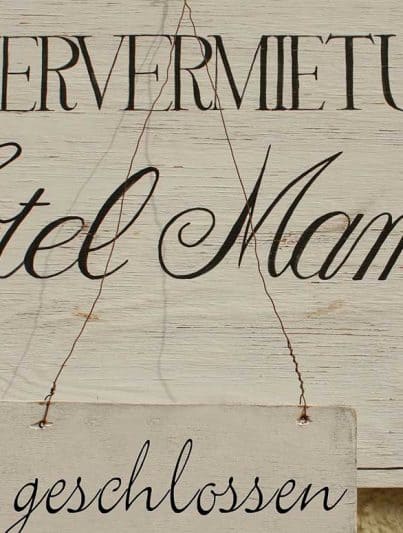 ERVERMIETU
tel Mam
geschlossen